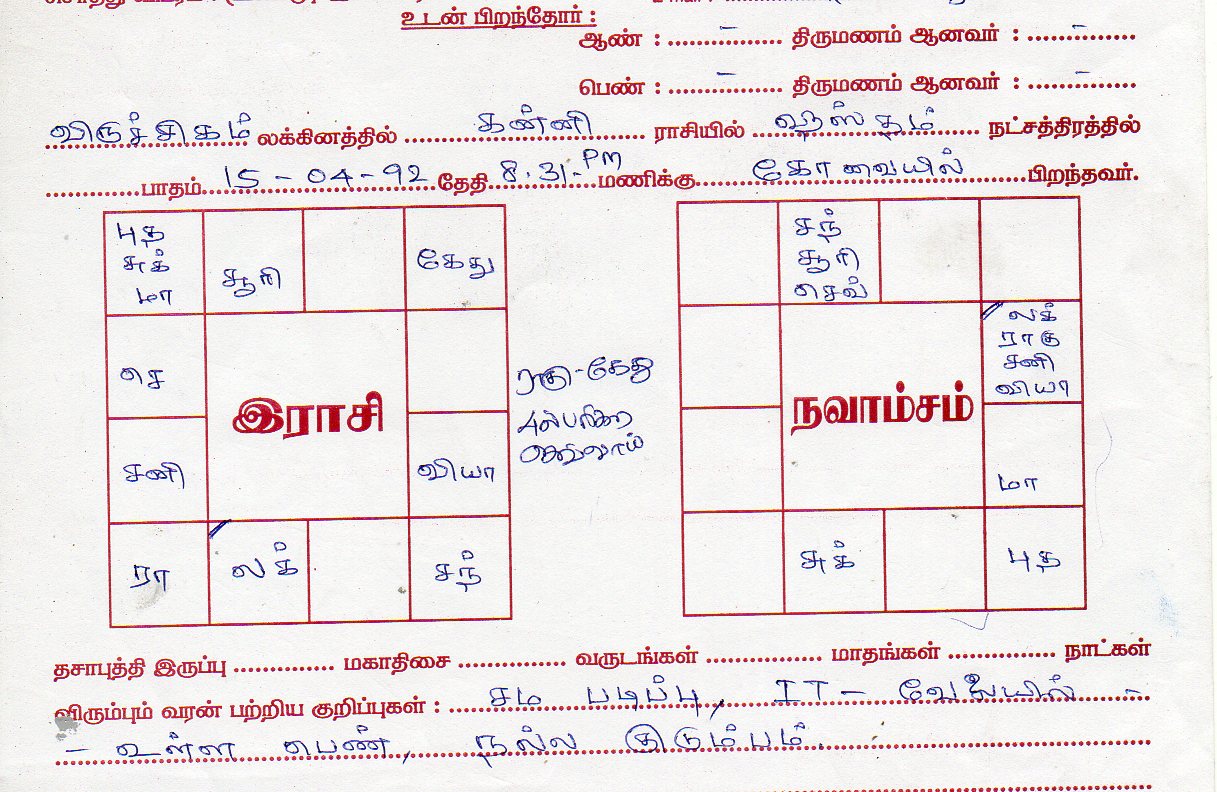 உடன் பிறந்தோர் :
ஆண் : ......–...... திருமணம் ஆனவர் : ......–......
பெண் : ......–...... திருமணம் ஆனவர் : ......–......
விருச்சிகம் லக்கினத்தில் கன்னி ராசியில் ஹஸ்தம் நட்சத்திரத்தில்
............பாதம் 15-04-92 தேதி 8.31-PM மணிக்கு கோவையில் பிறந்தவர்.
புத சுக் மா
சூரி
கேது
செ
இராசி
சனி
வியா
ரா
லக்
சந்
ராகு-கேது
சந் சூரி செவ்
லக் ராகு சனி வியா
நவாம்சம்
மா
சுக்
புத
தசாபுத்தி இருப்பு ............ மகாதிசை ............ வருடங்கள் ............ மாதங்கள் ............ நாட்கள்
விரும்பும் வரன் பற்றிய குறிப்புகள் : சம படிப்பு, IT – வேலையில் –
– உள்ள பெண், நல்ல குடும்பம்.